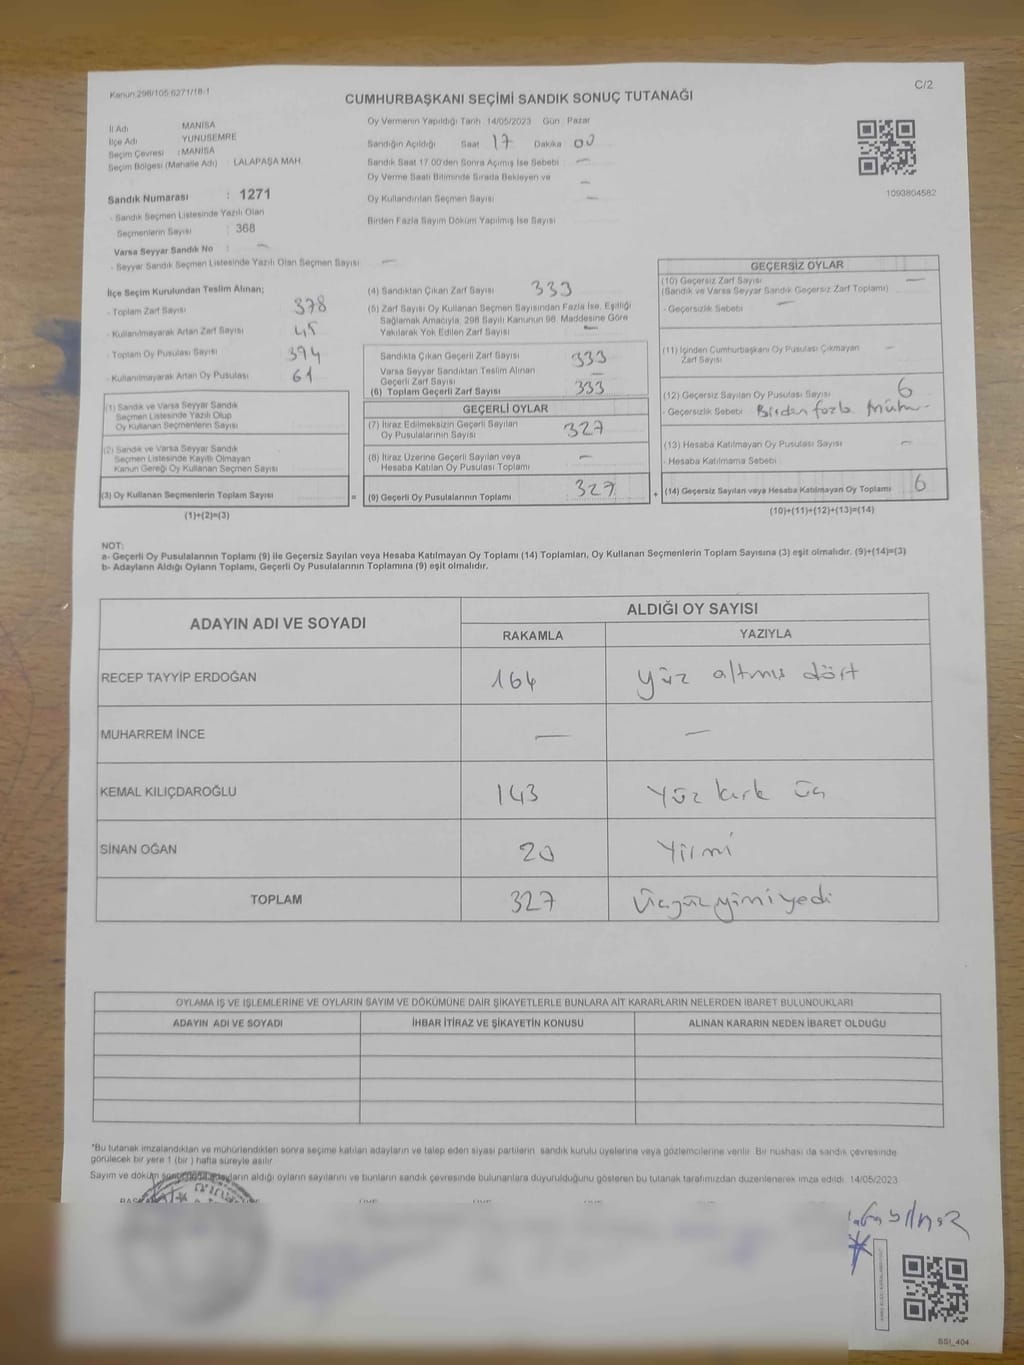 Kanun:298/105 6271/18-1
C/2
CUMHURBAŞKANI SEÇİMİ SANDIK SONUÇ TUTANAĞI
İl Adı : MANİSA
İlçe Adı : YUNUSEMRE
Seçim Çevresi : MANİSA
Seçim Bölgesi (Mahalle Adı) : LALAPAŞA MAH.
Sandık Numarası : 1271
- Sandık Seçmen Listesinde Yazılı Olan
Seçmenlerin Sayısı : 368
Varsa Seyyar Sandık No : —
- Seyyar Sandık Seçmen Listesinde Yazılı Olan Seçmen Sayısı —
Oy Vermenin Yapıldığı Tarih :14/05/2023 Gün : Pazar
Sandığın Açıldığı Saat 17 Dakika 00
Sandık Saat 17.00'den Sonra Açılmış İse Sebebi —
Oy Verme Saati Bitiminde Sırada Bekleyen ve —
Oy Kullandırılan Seçmen Sayısı —
Birden Fazla Sayım Döküm Yapılmış İse Sayısı
1093804582
İlçe Seçim Kurulundan Teslim Alınan;
- Toplam Zarf Sayısı 378
- Kullanılmayarak Artan Zarf Sayısı 45
- Toplam Oy Pusulası Sayısı 394
- Kullanılmayarak Artan Oy Pusulası 61
(1) Sandık ve Varsa Seyyar Sandık
Seçmen Listesinde Yazılı Olup
Oy Kullanan Seçmenlerin Sayısı
(2) Sandık ve Varsa Seyyar Sandık
Seçmen Listesinde Kayıtlı Olmayan
Kanun Gereği Oy Kullanan Seçmen Sayısı
(3) Oy Kullanan Seçmenlerin Toplam Sayısı =
(1)+(2)=(3)
(4) Sandıktan Çıkan Zarf Sayısı 333
(5) Zarf Sayısı Oy Kullanan Seçmen Sayısından Fazla İse, Eşitliği
Sağlamak Amacıyla; 298 Sayılı Kanunun 98. Maddesine Göre
Yakılarak Yok Edilen Zarf Sayısı —
Sandıkta Çıkan Geçerli Zarf Sayısı 333
Varsa Seyyar Sandıktan Teslim Alınan
Geçerli Zarf Sayısı —
(6) Toplam Geçerli Zarf Sayısı 333
GEÇERLİ OYLAR
(7) İtiraz Edilmeksizin Geçerli Sayılan
Oy Pusulalarının Sayısı 327
(8) İtiraz Üzerine Geçerli Sayılan veya
Hesaba Katılan Oy Pusulası Toplamı —
(9) Geçerli Oy Pusulalarının Toplamı 327 +
GEÇERSİZ OYLAR
(10) Geçersiz Zarf Sayısı —
(Sandık ve Varsa Seyyar Sandık Geçersiz Zarf Toplamı)
- Geçersizlik Sebebi —
(11) İçinden Cumhurbaşkanı Oy Pusulası Çıkmayan
Zarf Sayısı —
(12) Geçersiz Sayılan Oy Pusulası Sayısı 6
- Geçersizlik Sebebi Birden fazla Mühür
(13) Hesaba Katılmayan Oy Pusulası Sayısı —
- Hesaba Katılmama Sebebi
(14) Geçersiz Sayılan veya Hesaba Katılmayan Oy Toplamı 6
(10)+(11)+(12)+(13)=(14)
NOT:
a- Geçerli Oy Pusulalarının Toplamı (9) ile Geçersiz Sayılan veya Hesaba Katılmayan Oy Toplamı (14) Toplamları, Oy Kullanan Seçmenlerin Toplam Sayısına (3) eşit olmalıdır. (9)+(14)=(3)
b- Adayların Aldığı Oyların Toplamı, Geçerli Oy Pusulalarının Toplamına (9) eşit olmalıdır.
ADAYIN ADI VE SOYADI
ALDIĞI OY SAYISI
RAKAMLA YAZIYLA
RECEP TAYYİP ERDOĞAN 164 Yüz altmış dört
MUHARREM İNCE — —
KEMAL KILIÇDAROĞLU 143 Yüz kırk üç
SİNAN OĞAN 20 Yirmi
TOPLAM 327 Üçyüzyirmiyedi
OYLAMA İŞ VE İŞLEMLERİNE VE OYLARIN SAYIM VE DÖKÜMÜNE DAİR ŞİKAYETLERLE BUNLARA AİT KARARLARIN NELERDEN İBARET BULUNDUKLARI
ADAYIN ADI VE SOYADI İHBAR İTİRAZ VE ŞİKAYETİN KONUSU ALINAN KARARIN NEDEN İBARET OLDUĞU
*Bu tutanak imzalandıktan ve mühürlendikten sonra seçime katılan adayların ve talep eden siyasi partilerin sandık kurulu üyelerine veya gözlemcilerine verilir. Bir nüshası da sandık çevresinde
görülecek bir yere 1 (bir ) hafta süreyle asılır.
Sayım ve döküm adayların aldığı oyların sayılarını ve bunların sandık çevresinde bulunanlara duyurulduğunu gösteren bu tutanak tarafımızdan düzenlenerek imza edildi. 14/05/2023
SSI_404